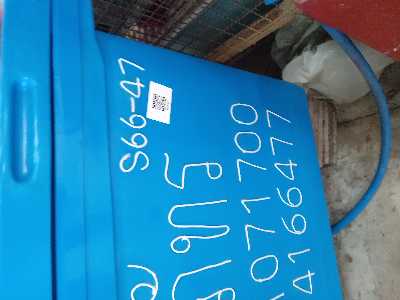 S66-47
ภัทร
1071700
4166477